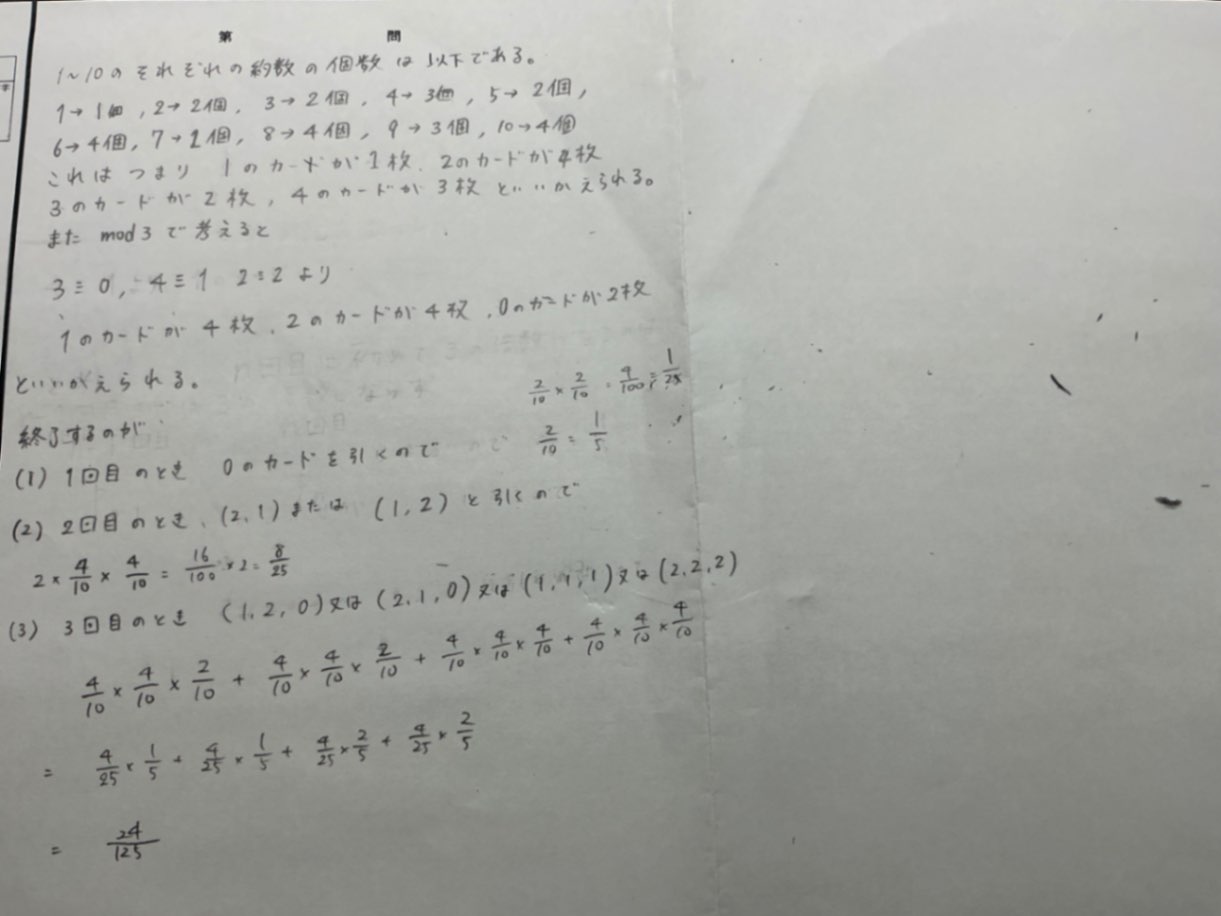 第 問
1~10のそれぞれの約数の個数は以下である。
1→1個, 2→2個, 3→2個, 4→3個, 5→2個,
6→4個, 7→2個, 8→4個, 9→3個, 10→4個
これはつまり 1のカードが1枚、2のカードが4枚
3のカードが2枚, 4のカードが3枚といいかえられる。
また mod3で考えると
3≡0, 4≡1 2≡2より
1のカードが4枚、2のカードが4枚、0のカードが2枚
といいかえられる。
2/10 × 2/10 = 4/100 = 1/25
終了するのが
(1) 1回目のとき 0のカードを引くので 2/10 = 1/5
(2) 2回目のとき、(2,1)または(1,2)と引くので
2×4/10×4/10 = 16/100×2 = 8/25
(3) 3回目のとき (1,2,0)又は(2,1,0)又は(1,1,1)又は(2,2,2)
4/10×4/10×2/10 + 4/10×4/10×2/10 + 4/10×4/10×4/10 + 4/10×4/10×4/10
= 4/25×1/5 + 4/25×1/5 + 4/25×2/5 + 4/25×2/5
= 24/125